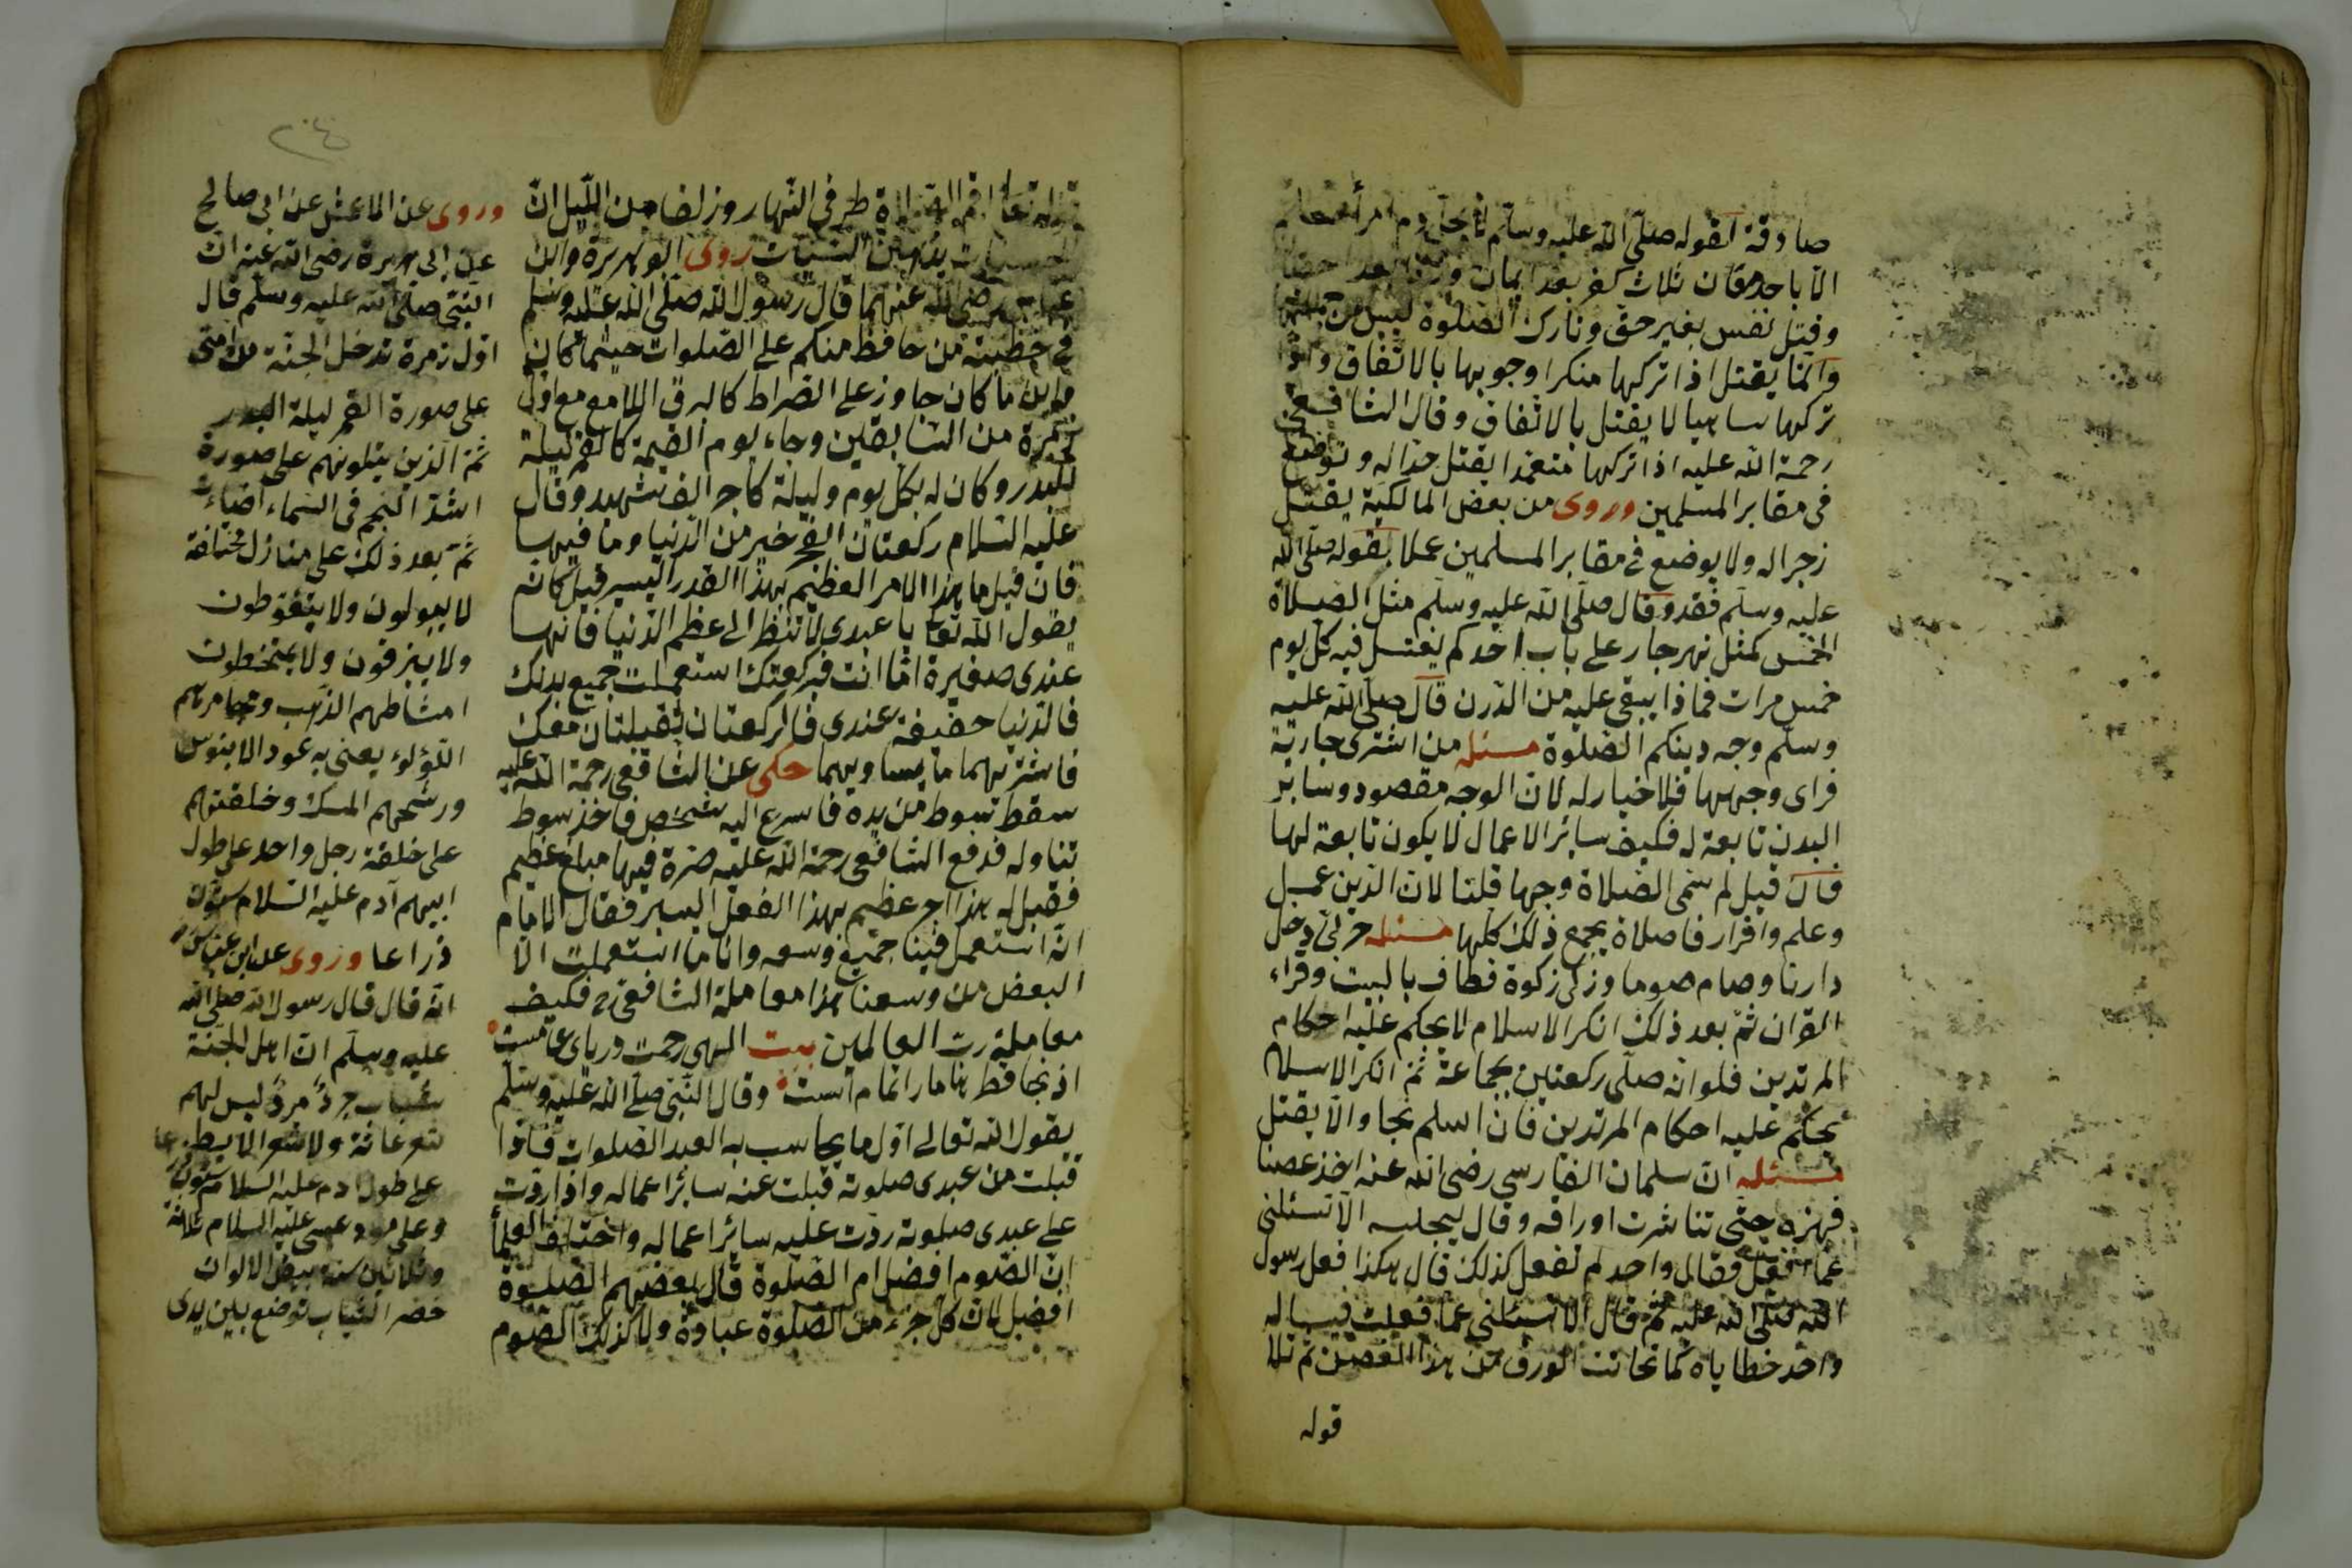 صادقة لقوله صلى الله عليه وسلم لا يحل دم امرأ
الا باحد معان ثلاث كفر بعد ايمان وزنا بعد احصان
وقتل نفس بغير حق وتارك الصلوة ليس من جملته
وانما يقتل اذا تركها منكرا وجوبها بالاتفاق وان
تركها ساهيا لا يقتل بالاتفاق وقال الشافعى
رحمة الله عليه اذا تركها متعمدا يقتل حدا له ويوضع
فى مقابر المسلمين وروى من بعض المالكية يقتل
زجرا له ولا يوضع فى مقابر المسلمين عملا بقوله صلى الله
عليه وسلم فقد وقال صلى الله عليه وسلم مثل الصلاة
الخمس كمثل نهر جار على باب احدكم يغتسل فيه كل يوم
خمس مرات فماذا يبقى عليه من الدرن قال صلى الله عليه
وسلم وجه دينكم الصلوة مسئله من اشترى جارية
فراى وجهها فلا خيار له لان الوجه مقصود وسائر
البدن تابعة له فكيف سائر الاعمال لا يكون تابعة لها
فان قيل لم سمى الصلاة وجها قلنا لان الدين عمل
وعلم واقرار فاصلاة يجمع ذلك كلها مسئله حربى دخل
دارنا وصام صوما وزكى زكوة فطاف بالبيت وقراء
القران ثم بعد ذلك انكر الاسلام لا يحكم عليه احكام
المرتدين فلو انه صلى ركعتين بجماعة ثم انكر الاسلام
يحكم عليه احكام المرتدين فان اسلم نجا والا يقتل
مسئله ان سلمان الفارسى رضى الله عنه اخذ غصنا
فهزه حتى تناثرت اوراقه وقال ليجلسه الا تسئلنى
عما افعل فقال واحد لم تفعل كذلك قال هكذا فعل رسول
الله صلى الله عليه ثم قال الا تسئلنى عما فعلت
واحد خطاياه كما تحاتت الورق من هذا الغصن ثم تلا
قوله
٢٠٤
قوله تعا اقم الصلاة طرفى النهار وزلفا من الليل ان
الحسنات يذهبن السيئات روى ابو هريرة وابن
عباس رضى الله عنهما قال رسول الله صلى الله عليه وسلم
فى خطبته من حافظ منكم على الصلوات حيثما كان
واين ما كان جاوز على الصراط كالبرق اللامع مع اول
زمرة من السابقين وجاء يوم القيمة كالقمر ليلة
البدر وكان له بكل يوم وليلة كاجر الف شهيد وقال
عليه السلام ركعتان الفجر خير من الدنيا وما فيها
فان قيل ما هذا الامر العظيم بهذا القدر اليسير قيل كانه
يقول الله تعا يا عبدى لا تنظر الى عظم الدنيا فانها
عندى صغيرة اما انت فبركعتك استعملت جميع بدنك
فالدنيا خفيفة عندى فالركعتان ثقيلتان معك
فاشتر بهما ما يساويهما حكى عن الشافعى رحمة الله عليه
سقط سوط من يده فاسرع اليه شخص فاخذ سوط
تناوله فدفع الشافعى رحمة الله عليه صرة فيها مبلغ عظيم
فقيل له هذا اجر عظيم بهذا الفعل اليسير فقال الامام
انه استعمل فينا جميع وسعه وانا ما استعملت الا
البعض من وسعنا هذا معاملة الشافعى رح فكيف
معاملة رب العالمين بيت الهى رحمت درياى عامست
از نجا قطرها ما را تمام است وقال النبى صلى الله عليه وسلم
يقول الله تعالى اول ما يحاسب به العبد الصلوات فاذا
قبلت من عبدى صلوته قبلت عنه سائر اعماله واذا ردت
على عبدى صلوته ردت عليه سائر اعماله واختلف العلماء
ان الصوم افضل ام الصلوة قال بعضهم الصلوة
افضل لان كل جزء من الصلوة عبادة ولا كذلك الصوم
وروى عن الاعمش عن ابى صالح
عن ابى هريرة رضى الله عنه ان
النبى صلى الله عليه وسلم قال
اول زمرة تدخل الجنة من امتى
على صورة القمر ليلة البدر
ثم الذين يتلونهم على صورة
اشد النجم فى السماء اضاءت
ثم بعد ذلك على منازل مختلفة
لا يبولون ولا يتغوطون
ولا يبزقون ولا يتمخطون
امشاطهم الذهب ومجامرهم
اللؤلوء يعنى به عود الابنوس
ورشحهم المسك وخلقتهم
على خلقة رجل واحد على طول
ابيهم آدم عليه السلام ستون
ذراعا وروى عن ابن عباس
انه قال قال رسول الله صلى الله
عليه وسلم ان اهل الجنة
شباب جرد مرد ليس لهم
شعر عانة ولا شعر الابط
على طول ادم عليه السلام ستون ذرعا
وعلى مولد عيسى عليه السلام ثلاثة
وثلاثين سنة بيض الالوان
خضر الثياب توضع بين يدى